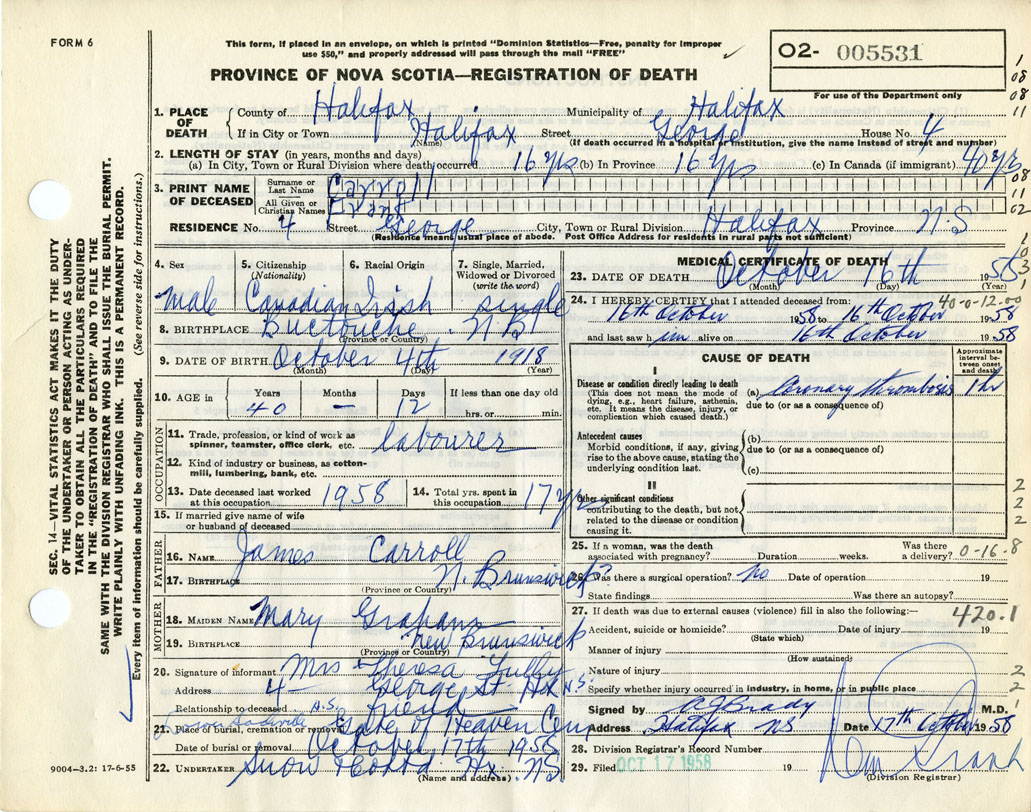 FORM 6
This form, if placed in an envelope, on which is printed "Dominion Statistics—Free, penalty for improper
use $50," and properly addressed will pass through the mail "FREE"
O2- 005531
For use of the Department only
PROVINCE OF NOVA SCOTIA—REGISTRATION OF DEATH
1. PLACE OF DEATH { County of Halifax Municipality of Halifax
If in City or Town Halifax Street George House No. 4
(Name) (If death occurred in a hospital or institution, give the name instead of street and number)
2. LENGTH OF STAY (in years, months and days)
(a) In City, Town or Rural Division where death occurred 16 yrs (b) In Province 16 yrs (c) In Canada (if immigrant) 40 yrs
3. PRINT NAME OF DECEASED { Surname or Last Name Carroll
All Given or Christian Names
RESIDENCE No. 4 Street George City, Town or Rural Division Halifax Province N.S
(Residence means usual place of abode. Post Office Address for residents in rural parts not sufficient)
4. Sex 5. Citizenship (Nationality) 6. Racial Origin 7. Single, Married, Widowed or Divorced (write the word)
male Canadian Irish single
8. BIRTHPLACE Buctouche. N.B
(Province or Country)
9. DATE OF BIRTH October 4th 1918
(Month) (Day) (Year)
10. AGE in Years Months Days If less than one day old
40 – 12 hrs. or min.
OCCUPATION
11. Trade, profession, or kind of work as spinner, teamster, office clerk, etc. labourer
12. Kind of industry or business, as cotton-mill, lumbering, bank, etc.
13. Date deceased last worked at this occupation 1958 14. Total yrs. spent in this occupation 17 yrs
15. If married give name of wife or husband of deceased
FATHER
16. NAME James Carroll
17. BIRTHPLACE N. Brunswick
(Province or Country)
MOTHER
18. MAIDEN NAME Mary
19. BIRTHPLACE New Brunswick
(Province or Country)
20. Signature of informant Mrs Theresa
Address 4 – George St. Hx N.S.
Relationship to deceased friend
21. Place of burial, cremation or removal Gate of Heaven Cem
Date of burial or removal October 17th 1958
22. UNDERTAKER Snow Hx. NS
(Name and address)
MEDICAL CERTIFICATE OF DEATH
23. DATE OF DEATH October 16th 1958
(Month) (Day)
24. I HEREBY CERTIFY that I attended deceased from: 40-0-12.00
16th October 1958 to 16th October 1958
and last saw him alive on 16th October 1958
CAUSE OF DEATH
Approximate interval between onset and death
I
Disease or condition directly leading to death
(This does not mean the mode of dying, e.g., heart failure, asthenia, etc. It means the disease, injury, or complication which caused death.)
(a) Coronary thrombosis 1 hr
due to (or as a consequence of)
Antecedent causes
Morbid conditions, if any, giving rise to the above cause, stating the underlying condition last.
(b)
due to (or as a consequence of)
(c)
II
Other significant conditions
contributing to the death, but not related to the disease or condition causing it.
25. If a woman, was the death associated with pregnancy? Duration weeks. Was there a delivery? 0-16-8
26. Was there a surgical operation? No Date of operation 19
State findings Was there an autopsy?
27. If death was due to external causes (violence) fill in also the following:— 420.1
Accident, suicide or homicide? Date of injury 19
(State which)
Manner of injury
(How sustained)
Nature of injury
Specify whether injury occurred in industry, in home, or in public place
Signed by Brady M.D.
Address Halifax NS Date 17th October 1958
28. Division Registrar's Record Number
29. Filed OCT 17 1958 19
(Division Registrar)
SEC. 14—VITAL STATISTICS ACT MAKES IT THE DUTY
OF THE UNDERTAKER OR PERSON ACTING AS UNDER-
TAKER TO OBTAIN ALL THE PARTICULARS REQUIRED
IN THE "REGISTRATION OF DEATH" AND TO FILE THE
SAME WITH THE DIVISION REGISTRAR WHO SHALL ISSUE THE BURIAL PERMIT.
WRITE PLAINLY WITH UNFADING INK. THIS IS A PERMANENT RECORD.
Every item of information should be carefully supplied. (See reverse side for instructions.)
9004—3.2: 17-6-55